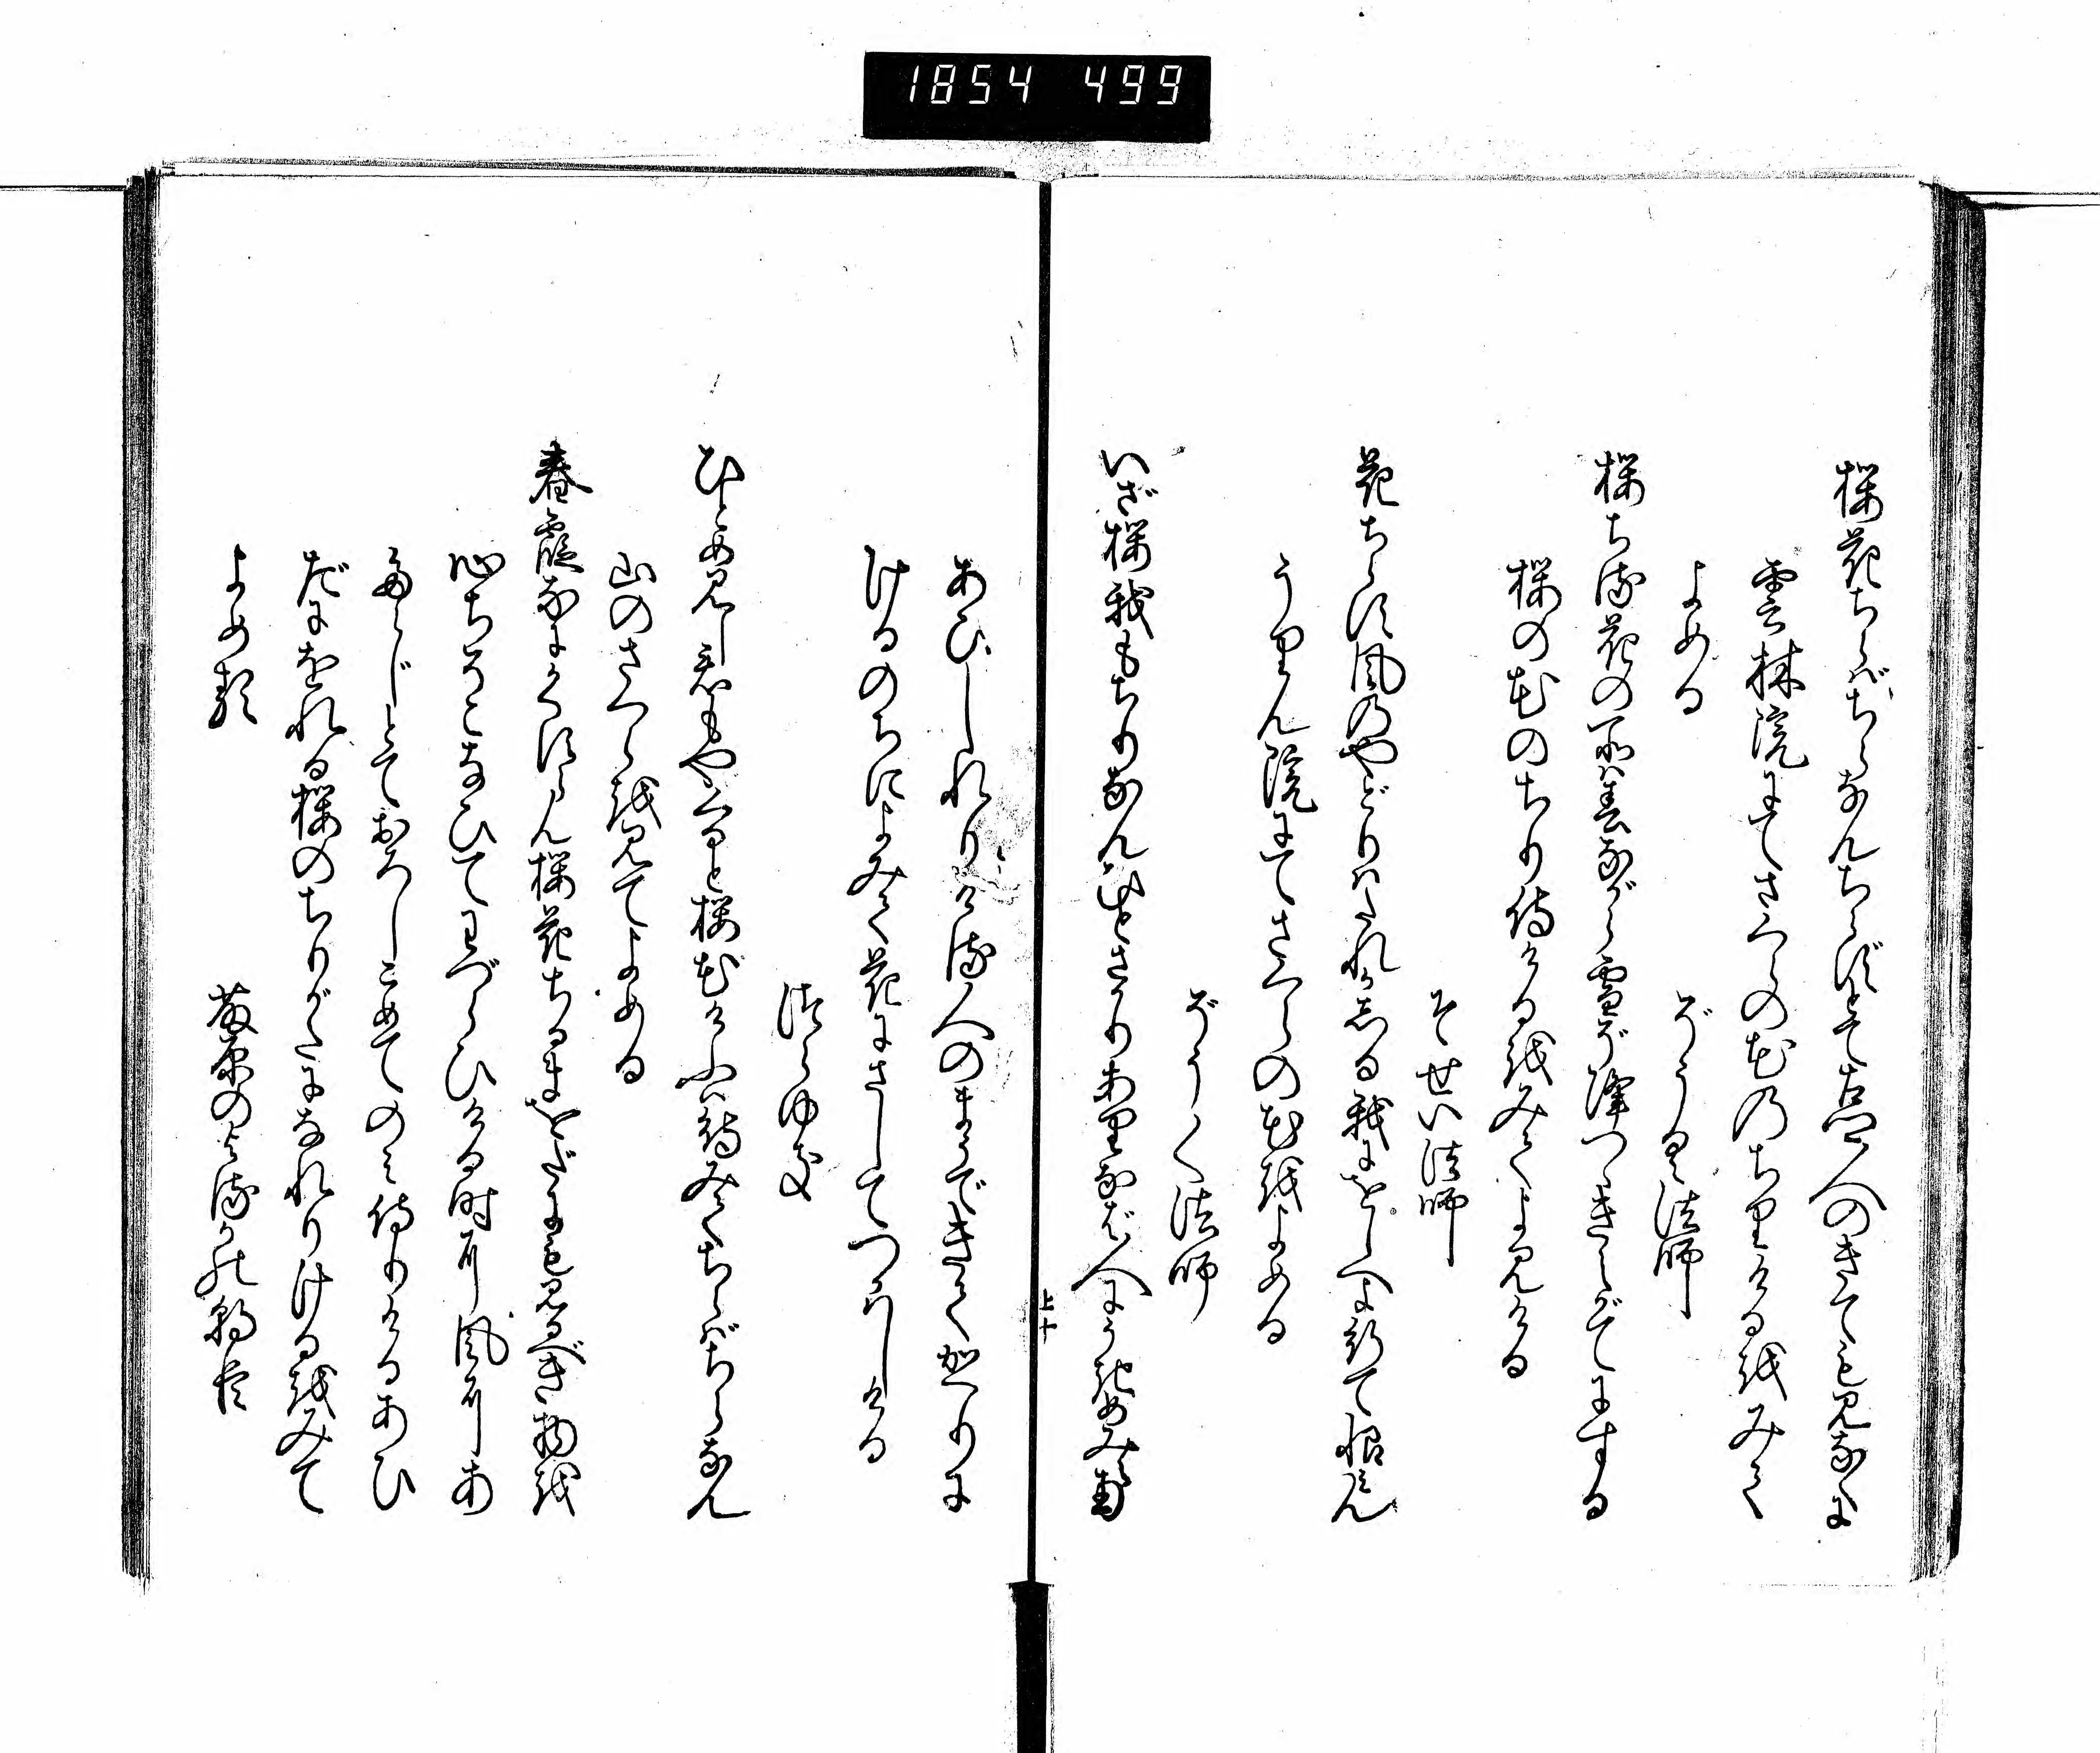 1854 499
桜花ちらばちらなんちらずとて古里人のきても見なくに
雲林院にてさくらの花のちりけるをみて
よめる
ぞうく法師
桜ちる花の所は春ながら雪ぞ降つゝきえがてにする
桜の花のちり侍けるをみてよみける
そせい法師
花ちらす風のやどりはたれかしる我にをしへよ行て恨みん
うりん院にてさくらの花をよめる
ぞうく法師
いざ桜我もちりなんひとさかりありなば人にうきめみえ南
上十
あひしれりける人のまうできてかへりに
けるのちによみて花にさしてつかはしける
つらゆき
ひとめ見し君もやくると桜花けふは待みてちらばちらなん
山のさくらを見てよめる
春霞なにかくすらん桜花ちるまをだにも見るべき物を
心ちそこなひてわづらひける時に風にあ
たらじとておろしこめてのみ侍りけるあひ
だにをれる桜のちりがたになれりけるをみて
よめる
藤原のよるかの朝臣